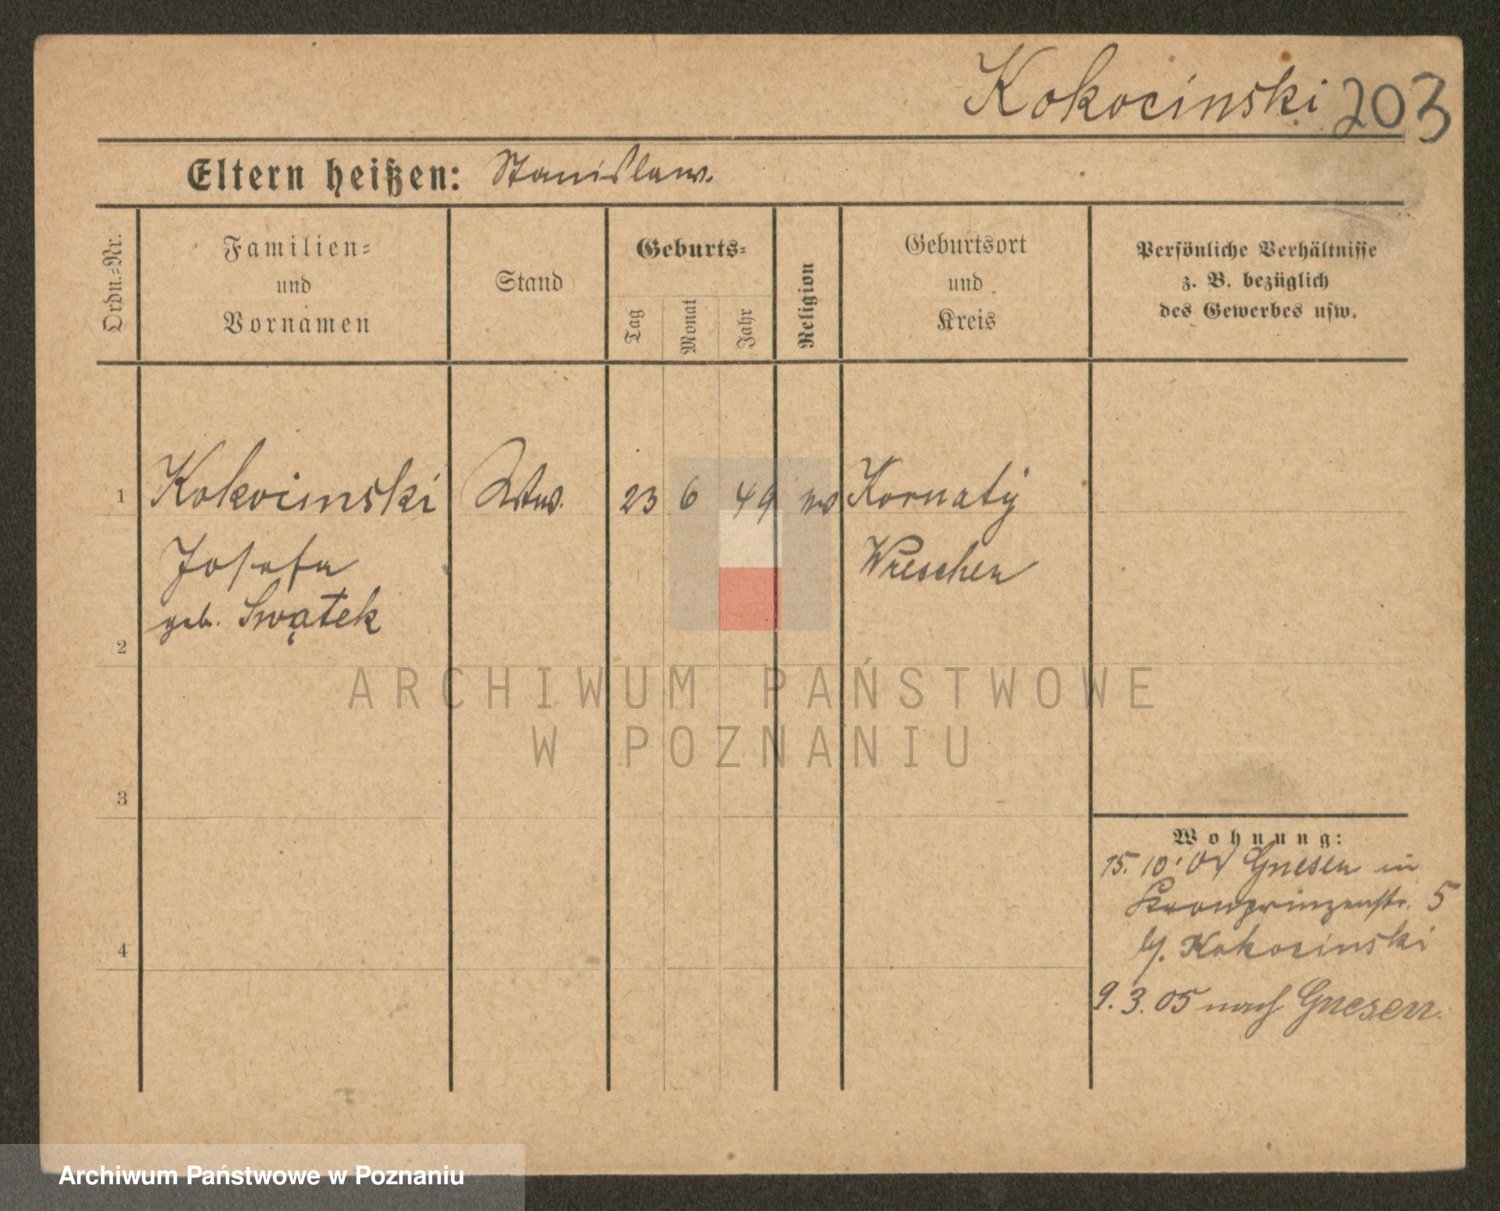 Kokocinski 203
Eltern heißen: Stanislaw.
Ordn.=Nr.
Familien=
und
Vornamen
Stand
Geburts=
Tag
Monat
Jahr
Religion
Geburtsort
und
Kreis
Persönliche Verhältnisse
z. B. bezüglich
des Gewerbes usw.
1 Kokocinski Wtw. 23 6 49 Kornaty
Josefa Wreschen
geb. Swątek
2
3
4
Wohnung:
15. 10. Gnesen in
Kronprinzenstr. 5
b/. Kokocinski
9. 3. 05 nach Gnesen.
ARCHIWUM PAŃSTWOWE
W POZNANIU
Archiwum Państwowe w Poznaniu